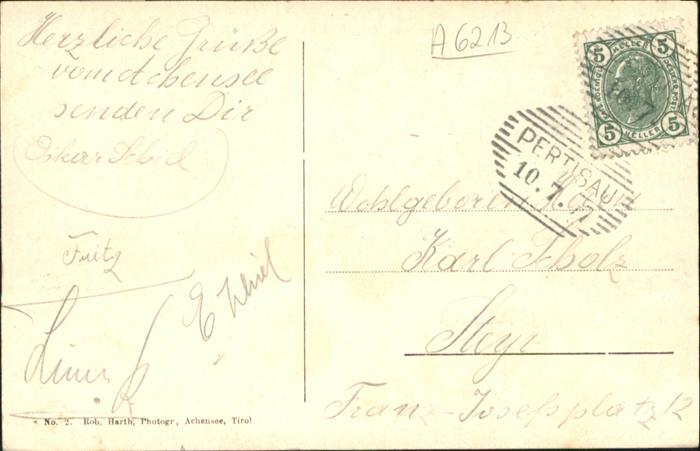 Herzliche Grüße
vom Achensee
senden Dir
Oskar
Fritz
No. 2. Rob. Harth, Photogr, Achensee, Tirol.
A6213
5 5
HELLER
5 HELLER 5
PERTISAU
10.7.
Wohlgeboren
Karl Scholz
Steyr
Franz-Josefsplatz 12